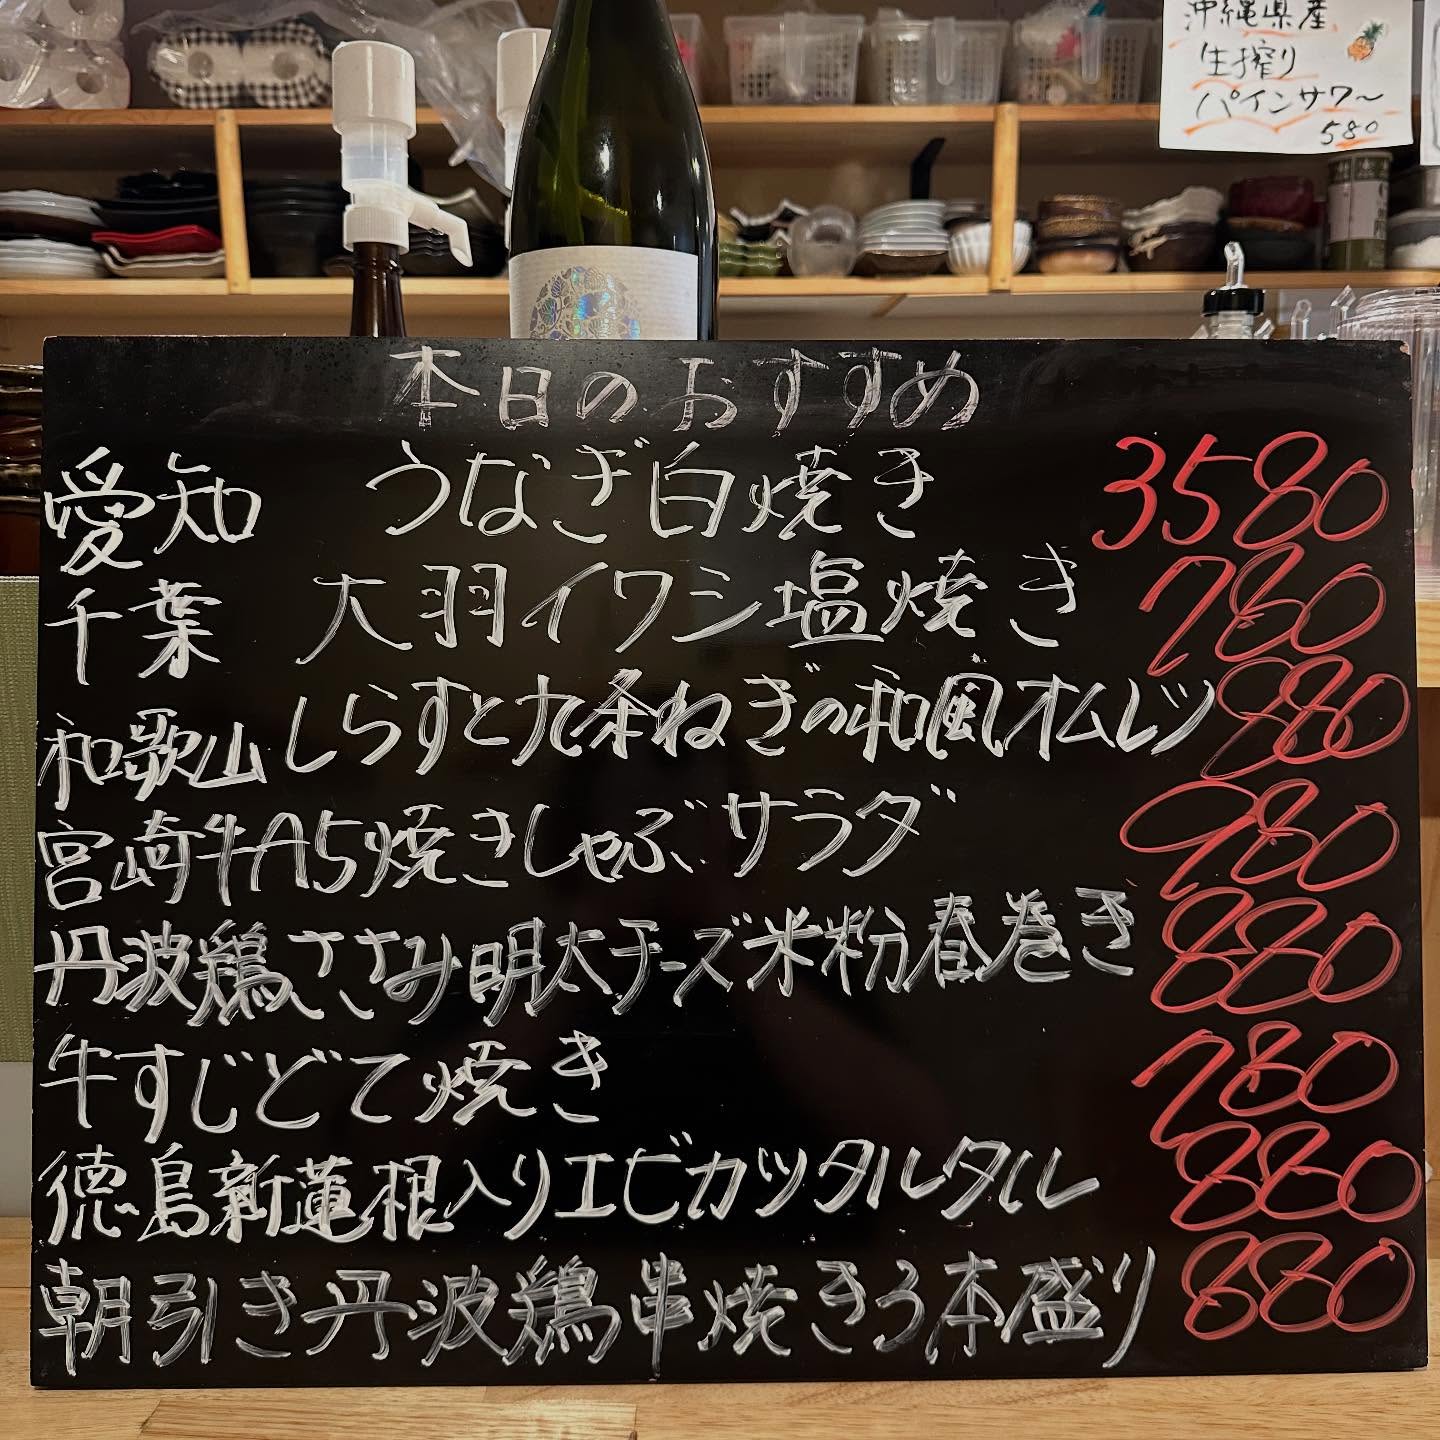 沖縄県産
生搾り
パインサワ〜
580
本日のおすすめ
愛知 うなぎ白焼き 3580
千葉 大羽イワシ塩焼き 780
和歌山 しらすと九条ねぎの和風オムレツ 880
宮崎牛A5焼きしゃぶサラダ 980
丹波鶏ささみ明太チーズ米粉春巻き 880
牛すじどて焼き 780
徳島新蓮根入りエビカツタルタル 880
朝引き丹波鶏串焼き3本盛り 880